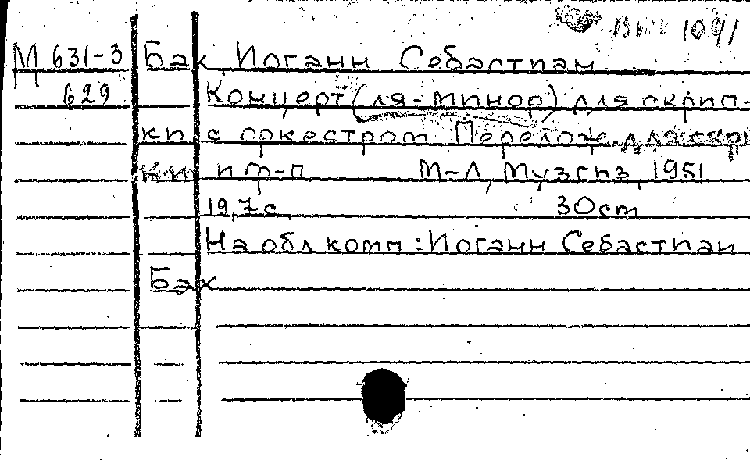 1091
М 631-3 Бах, Иоганн Себастиан
629 Концерт (ля-минор) для скрип-
ки с оркестром. Перелож. для скрип
ки и ф-п М-Л, Музгиз, 1951
19,7 с. 30 cm
На обл. комп.: Иоганн Себастиан
Бах